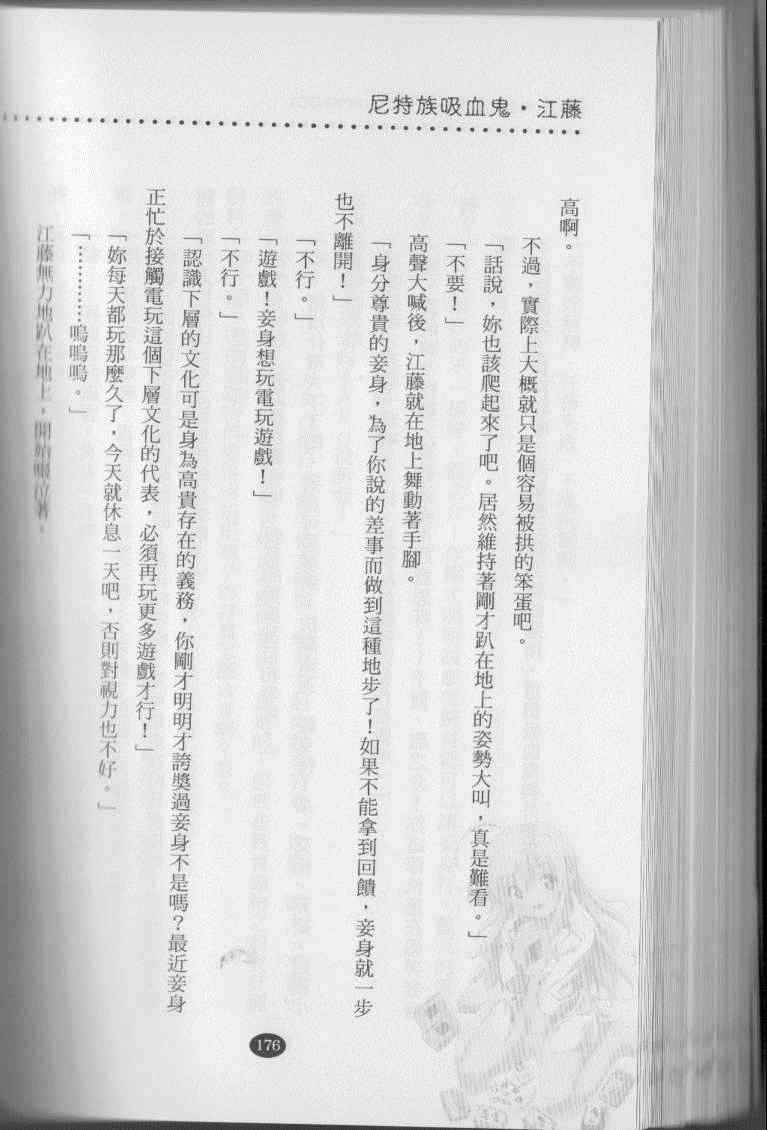 尼特族吸血鬼・江藤
高啊。
不過，實際上大概就只是個容易被拱的笨蛋吧。
「話說，妳也該爬起來了吧。居然維持著剛才趴在地上的姿勢大叫，真是難看。」
「不要！」
高聲大喊後，江藤就在地上舞動著手腳。
「身分尊貴的妾身，為了你說的差事而做到這種地步了！如果不能拿到回饋，妾身就一步
也不離開！」
「不行。」
「遊戲！妾身想玩電玩遊戲！」
「不行。」
「認識下層的文化可是身為高貴存在的義務，你剛才明明才誇獎過妾身不是嗎？最近妾身
正忙於接觸電玩這個下層文化的代表，必須再玩更多遊戲才行！」
「妳每天都玩那麼久了，今天就休息一天吧，否則對視力也不好。」
「…………嗚嗚嗚。」
江藤無力地趴在地上，開始啜泣著。
176